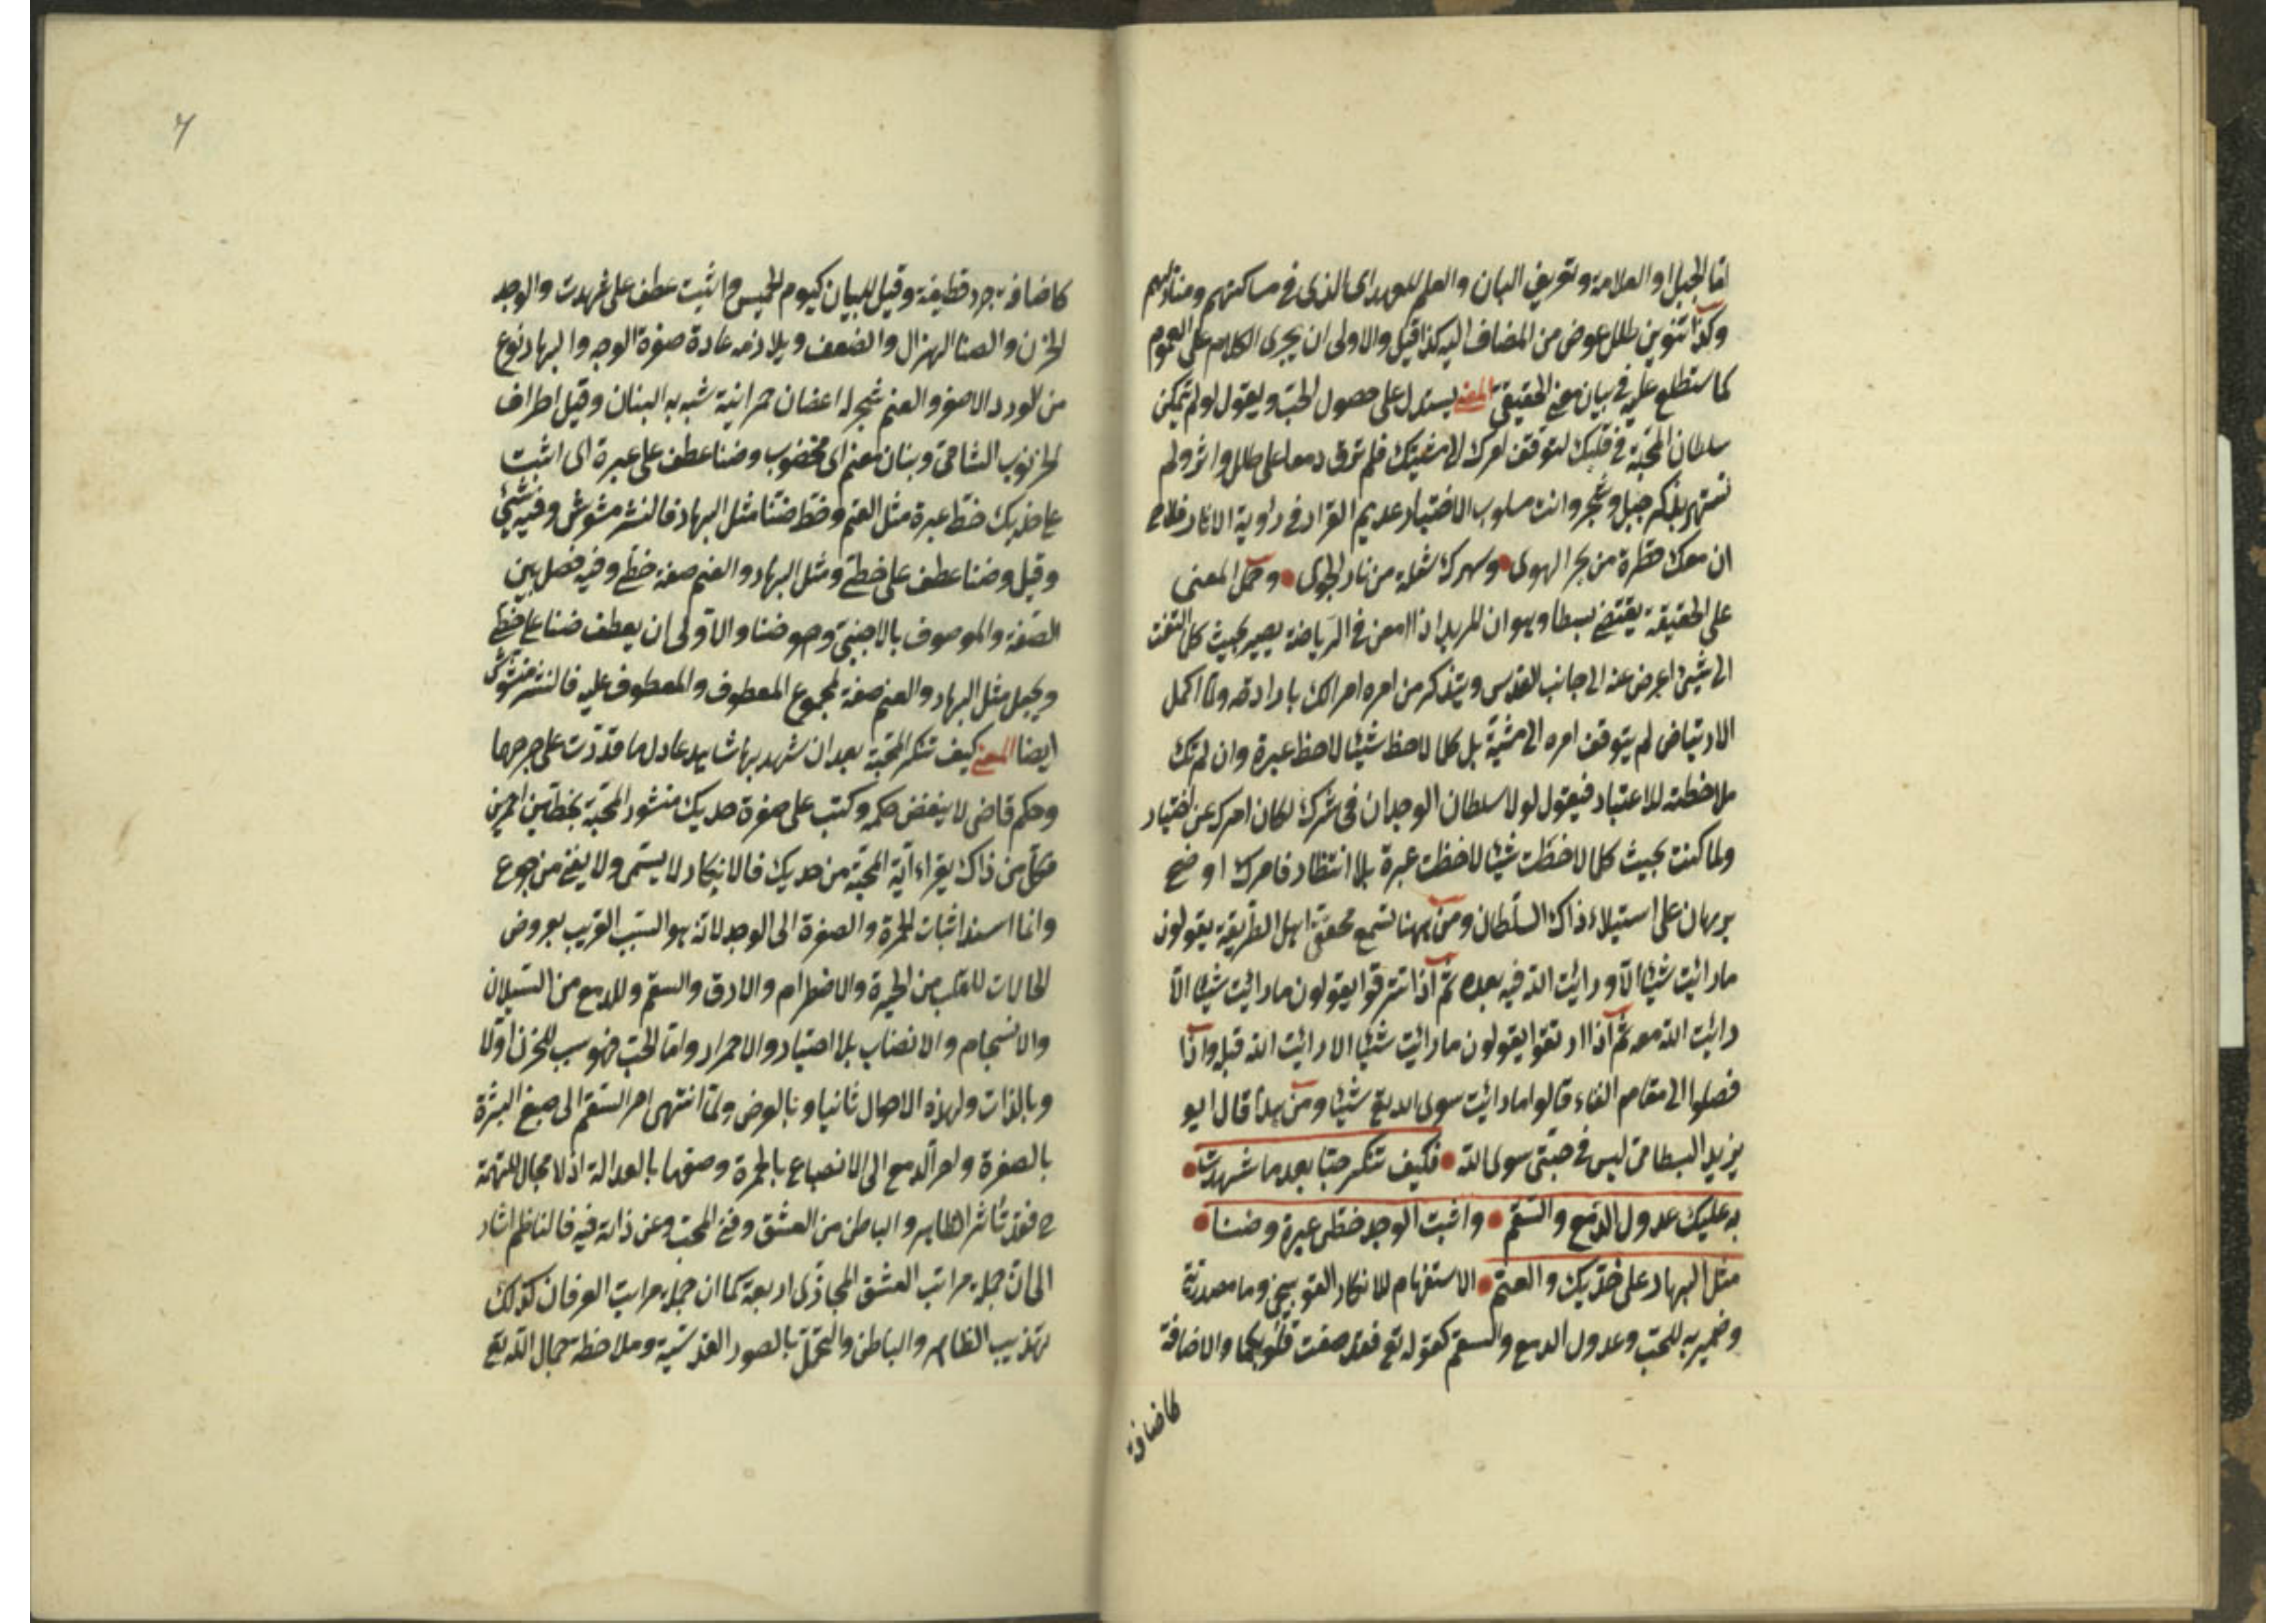 امّا الجبل او العلامة وتعريف البان والعلم للعهد اى الذى فى مساكنهم ومنازلهم
وكذا تنوين طلل عوض من المضاف اليه كذا قيل والاولى ان يجرى الكلام على العموم
كما ستطلع عليه فى بيان معنى الحقيقى المعنى يستدل على حصول الحب ويقول لو لم تمكن
سلطان المحبّة فى قلبك لتوقف امرك الى مشيتك فلم ترق دمعا على طلل واثر ولم
بذكر جبل وشجر وانت مسلوب الاختيار عديم القرار فى زاوية الانكار فلاح
ان دمعك قطرة من بحر الهوى وسهرك شعلة من نار الجوى وحمل المعنى
على الحقيقة يقتضى بسطا وهو ان المريد اذا امعن فى الرياضة يصير بحيث كلما التفت
الى شيئ اعرض عنه الى جانب القدس ويتذكر من امره امرا لكن بارادته ولمّا اكمل
الارتياض لم يتوقف امره الى مشية بل كلما لاحظ شيئا لاحظ غيره وان لم تك
ملاحظته للاعتبار فيقول لولا سلطان الوجدان فى سرّك لكان امرك عن اختيار
ولما كنت بحيث كلما لاحظت شيئا لاحظت غيره بلا انتظار فامرك اوضح
برهان على استيلاء ذاك السلطان ومن ههنا تسمع محققى اهل الطريقة يقولون
ما رائيت شيئا الاّ ورائيت الله فيه بعده ثم اذا ترقوا يقولون ما رائيت شيئا الاّ
رائيت الله معه ثم اذا ارتقوا يقولون ما رائيت شيئا الا رائيت الله قبله واذا
فصلوا الى مقام الفناء قالوا ما رائيت سوى الله تع شيئا ومن هذا قال ابو
يزيد البسطامى ليس فى جبتى سوى الله فكيف تنكر حبا بعد ما شهدت
به عليك عدول الدمع والسقم واثبت الوجد خطى عبرة وضنا
مثل البهار على خدّيك والعنم الاستفهام للانكار التوبيخى وما مصدرية
وضمير به للحب وعدول الدمع والسقم كقوله تع فقد صغت قلوبكما والاضافة
كاضافة
كاضافة جرد قطيفة وقيل للبيان كيوم الخميس واثبت عطف على شهدت والوجد
الحزن والضنا الهزال والضعف ويلازمه عادة صفرة الوجه والبهار نوع
من الورد الاصفر والعنم شجر له اغصان حمرانية شبه به البنان وقيل اطراف
الخرنوب الشامى وبنان معنم اى مخضوب وضنا عطف على عبرة اى اثبت
على خدّيك خط عبرة مثل العنم وخط ضنا مثل البهار فالنشر مشوش وفيه شيئ
وقيل وضنا عطف على خطى ومثل البهار والعنم صفة خطى وفيه فصل بين
الصفة والموصوف بالاجنبى وهو ضنا والاولى ان يعطف ضنا على خطى
ويجعل مثل البهار والعنم صفة لمجموع المعطوف والمعطوف عليه فالنشر مشوش
ايضا المعنى كيف تنكر المحبّة بعد ان شهد بها شاهد عادل ما قدرت على جرحها
وحكم قاض لا ينقض حكمه وكتب على صفرة خديك منشور المحبّة بخطّين احمرين
فكل من ذاك يقراء اية المحبّة من خديك فالانكار لا يسمى ولا يغنى من جوع
وانما اسند اثبات الحمرة والصفرة الى الوجد لانه هو السبب القريب بعروض
الحالات للقلب من الحيرة والاضطرام والارق والسقم وللدمع من السيلان
والانسجام والانصباب بلا اختيار والاحمرار وامّا الحب فهو سبب للحزن اولا
وبالذات ولهذه الاحوال ثانيا وبالعرض ولمّا انتهى امر السقم الى صبغ البشرة
بالصفرة وامر الدمع الى الانصباغ بالحمرة وصفهما بالعدالة اذ لا مجال للتهمة
ح فقد تاثر الظاهر والباطن من العشق وفنى المحب عن ذاته فيه فالناظم اشار
الى ان جملة مراتب العشق المجازى اربعة كما ان جملة مراتب العرفان كذلك
تهذيب الظاهر والباطن والتحلى بالصور القدسية وملاحظة جمال الله تع